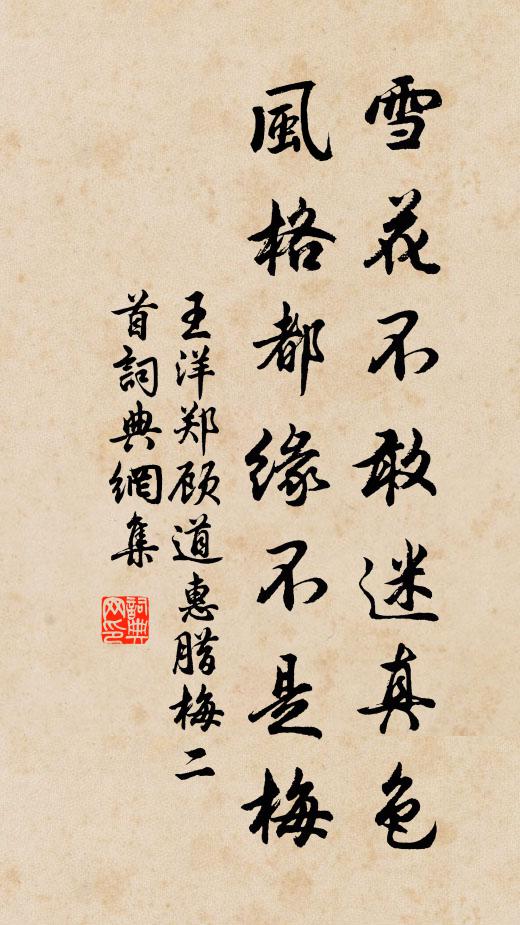 雪花不敢迷真色
風格都緣不是梅
王洋郑顾道惠腊梅二
首詞典網集
詞典网印